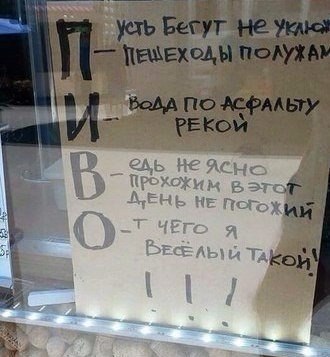 П - усть Бегут не уклюж
пешеходы по лужам
И - вода по асфальту
рекой
В - едь не ясно
прохожим в этот
день не погожий
О - т чего я
весёлый такой!
! ! !